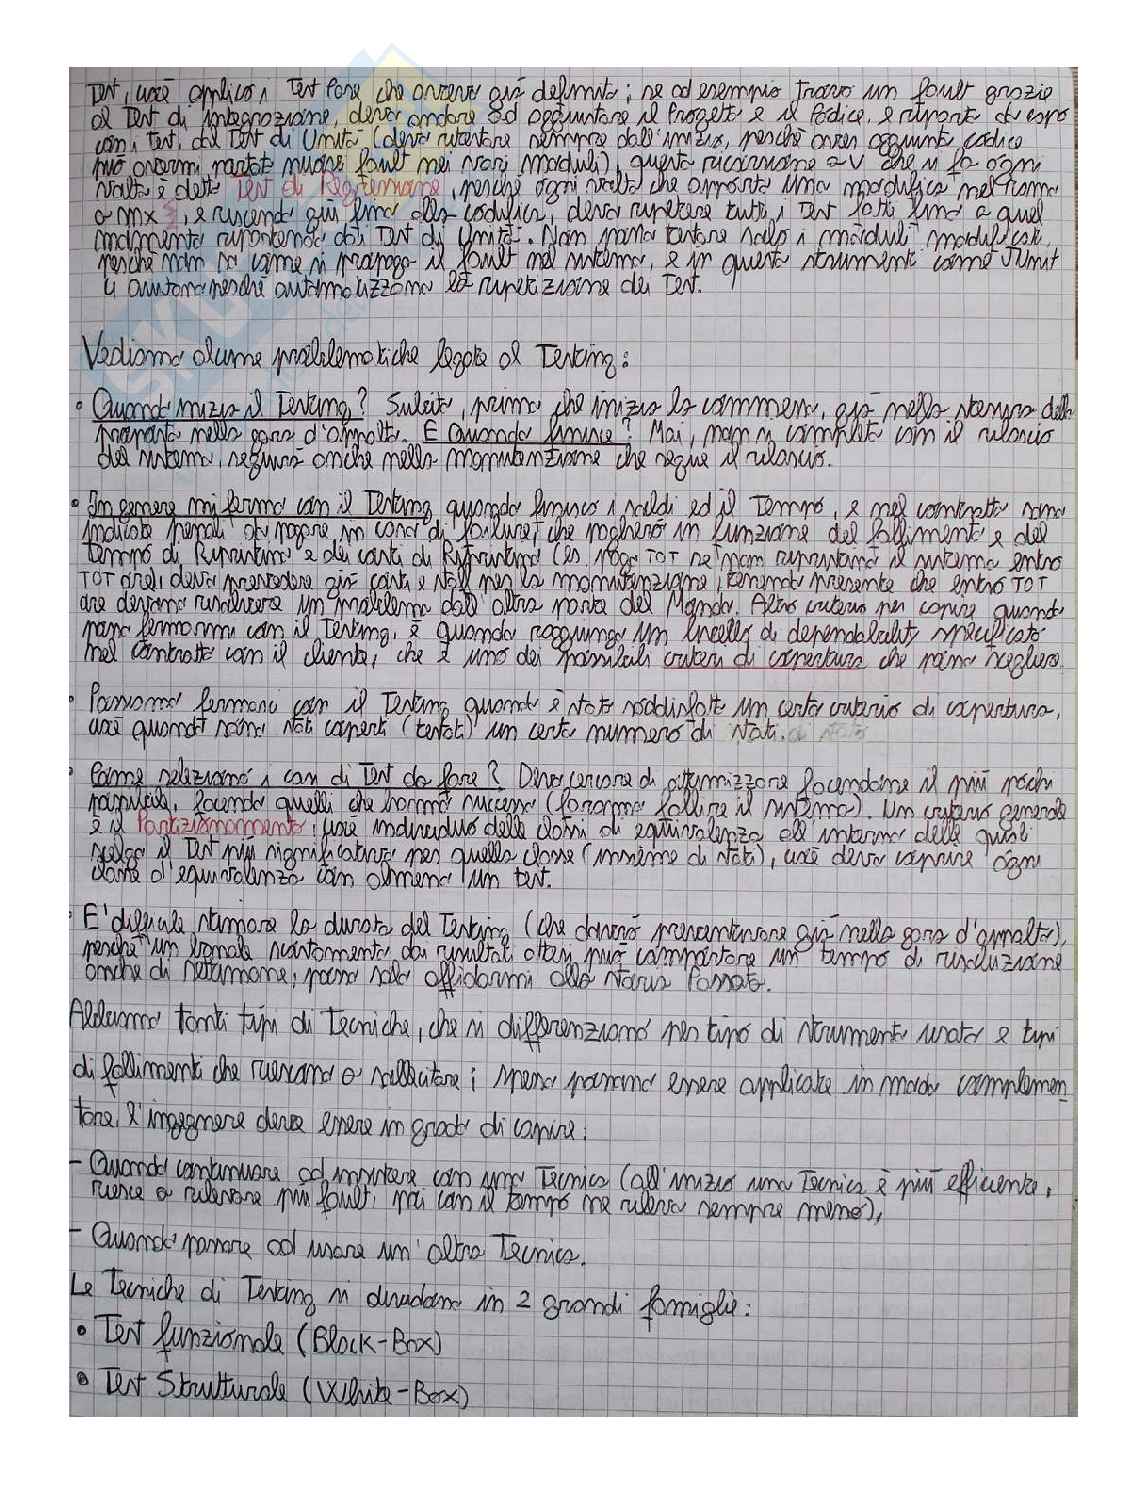 Test, cioè applico i Test Case che avevo già definito; se ad esempio trovo un fault grazie
al Test di integrazione, devo andare ad aggiustare il Progetto e il Codice, e riparto da capo
con i Test, dal Test di Unità (devo ritestare sempre dall'inizio, perché aver aggiunto codice
può avermi portato nuovi fault nei vari moduli), questa ricorsione a V che si fa ogni
volta è detta Test di Regressione, perché ogni volta che apporto una modifica nel ramo
a mx, e riuscendo giù fino alla codifica, devo ripetere tutti i Test fatti fino a quel
momento ripartendo dai Test di Unità. Non posso testare solo i moduli modificati,
perché non so come si propaga il fault nel sistema, e in questo strumenti come JUnit
ci aiutano perché automatizzano la ripetizione dei Test.
Vediamo alcune problematiche legate al Testing:
• Quando inizia il Testing? Subito, prima che inizia la commessa, già nella stesura della
proposta nella gara d'appalto. E Quando finisce? Mai, non si completa con il rilascio
del sistema, seguirà anche nella manutenzione che segue il rilascio.
• In genere mi fermo con il Testing quando finisco i soldi ed il Tempo, e nel contratto sono
indicate penali da pagare in caso di failure, che saglierò in funzione del fallimento e del
tempo di Ripristino e dei costi di Ripristino (es. Pago TOT se non ripristino il sistema entro
TOT ore), devo prevedere già costi e staff per la manutenzione, tenendo presente che entro TOT
ore devono risolvere un problema dall'altra parte del Mondo. Altro criterio per capire quando
posso fermarmi con il Testing, è quando raggiungo un livello di dependability specificato
nel contratto con il cliente, che è uno dei possibili criteri di copertura che posso scegliere.
• Possiamo fermarci con il Testing quando è stato soddisfatto un certo criterio di copertura,
cioè quando sono stati coperti (testati) un certo numero di stati. di stati
• Come seleziono i casi di Test da fare? Devo cercare di ottimizzare facendone il più pochi
possibile, facendo quelli che hanno successo (faranno fallire il sistema). Un criterio generale
è il Partizionamento, cioè individuo delle classi di equivalenza all'interno delle quali
scelgo il Test più significativo per quella classe (insieme di stati), cioè devo coprire ogni
classe d'equivalenza con almeno un test.
• E' difficile stimare la durata del Testing (che dovrò preventivare già nella gara d'appalto),
perché un banale scostamento dai risultati attesi può comportare un tempo di risoluzione
anche di settimane, posso solo affidarmi allo storico Passato.
Abbiamo tanti tipi di Tecniche, che si differenziano per tipo di strumento usato e tipi
di fallimenti che riescono a sollecitare; spesso possono essere applicate in modo complemen-
tare, l'ingegnere deve essere in grado di capire:
- Quando continuare ad insistere con una Tecnica (all'inizio una Tecnica è più efficiente,
riesce a rilevare più fault, poi con il tempo ne rileva sempre meno),
- Quando passare ad usare un'altra Tecnica.
Le Tecniche di Testing si dividono in 2 grandi famiglie:
• Test funzionale (Black-Box)
• Test Strutturale (White-Box)